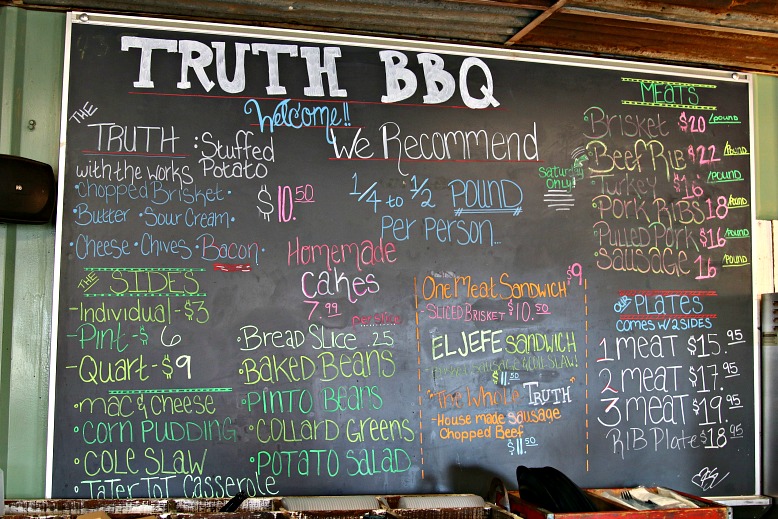 TRUTH BBQ
Welcome!!
THE
TRUTH : Stuffed
with the works Potato
• Chopped Brisket •
Butter • Sour Cream •
• Cheese • Chives • Bacon •
$10.50
We Recommend
1/4 to 1/2 POUND
Per Person...
Homemade
Cakes
7.99
per slice
THE SIDES
- Individual - $3
- Pint - $6
- Quart - $9
• Mac & Cheese
• Corn Pudding
• Cole Slaw
• Tater Tot Casserole
• Bread Slice .25
• Baked Beans
• Pinto Beans
• Collard Greens
• Potato Salad
One Meat Sandwich $9
SLICED BRISKET $10.50
EL JEFE SANDWICH
$11.50
"The Whole TRUTH"
- House made Sausage
Chopped Beef
$11.50
MEATS
Brisket $20 /pound
Saturday Only!
Beef Rib $22 /pound
Turkey $16 /pound
Pork Ribs 18 /pound
Pulled Pork $16 /pound
Sausage 16 /pound
OUR PLATES
COMES W/2 SIDES
1 meat $15.95
2 meat $17.95
3 meat $19.95
RIB Plate $18.95